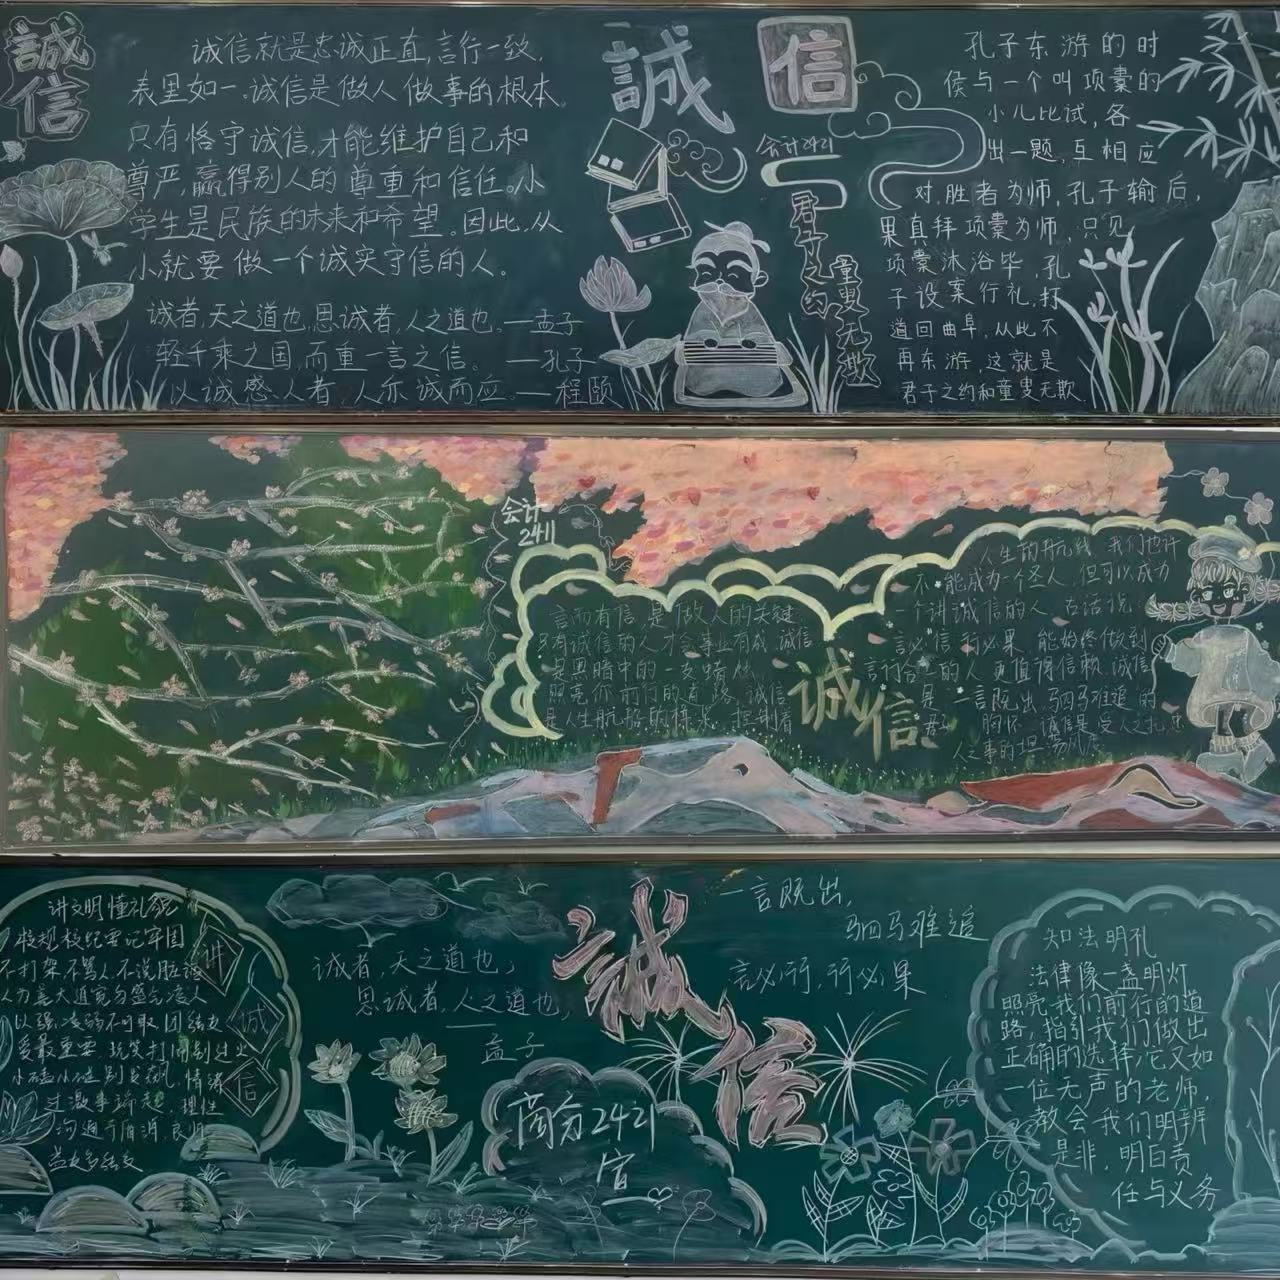 誠信
诚信就是忠诚正直,言行一致,
表里如一。诚信是做人做事的根本。
只有恪守诚信,才能维护自己和
尊严,赢得别人的尊重和信任。小
学生是民族的未来和希望。因此,从
小就要做一个诚实守信的人。
诚者,天之道也,思诚者,人之道也。—孟子
轻千乘之国,而重一言之信。—孔子
以诚感人者,人亦诚而应。—程颐
誠信
会计2421
君子之约
童叟无欺
孔子东游的时
候与一个叫项橐的
小儿比试,各
出一题,互相应
对,胜者为师,孔子输后,
果直拜项橐为师,只见
项橐沐浴毕,孔
子设案行礼,打
道回曲阜,从此不
再东游,这就是
君子之约和童叟无欺.
会计
2411
言而有信,是做人的关键
只有诚信的人才会事业有成,诚信
是黑暗中的一支蜡烛
照亮你前行的道路,诚信
诚信
人生的航线,我们也许
不能成为一个圣人,但可以成为
一个讲诚信的人,古话说
言必信行必果,能始终做到
言行合一的人更值得信赖,诚信
是一言既出驷马难追的
讲文明懂礼貌
校规校纪要记牢固
不打架不骂人不说脏话
以强凌弱不可取团结友
爱最重要
讲
诚
信
诚者,天之道也;
思诚者,人之道也;
孟子
誠信
一言既出,
驷马难追
言必行,行必果
商务2421
宣
知法明礼
法律像一盏明灯
照亮我们前行的道
路,指引我们做出
正确的选择,它又如
一位无声的老师,
教会我们明辨
是非,明白责
任与义务